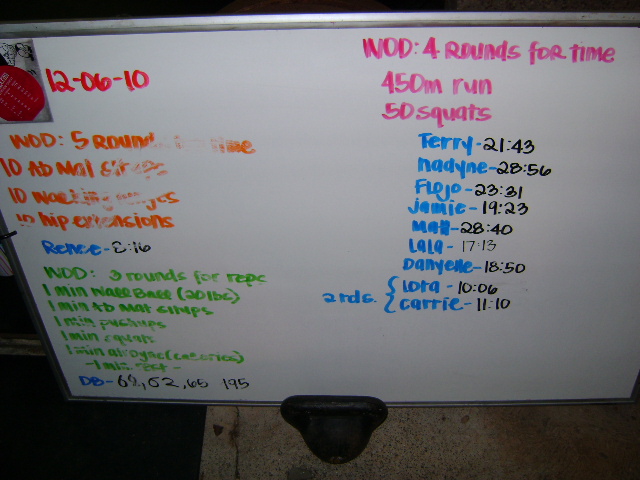 12-06-10
WOD: 5 Round time
10 Ab Mat
10 Walking
10 hip extensions
Renee - 8:16
WOD: 3 rounds for reps
1 min Wall Ball (20lbs)
1 min Ab Mat situps
1 min pushups
1 min squats
1 min airdyne (calories)
- 1 min rest -
DB- 68, 62, 65 195
WOD: 4 rounds for time
450m run
50 squats
Terry - 21:43
nadyne - 28:56
Flojo - 23:31
jamie - 19:23
Matt - 28:40
Lala - 17:13
Danyelle - 18:50
2 rds. { Lora - 10:06
carrie - 11:10